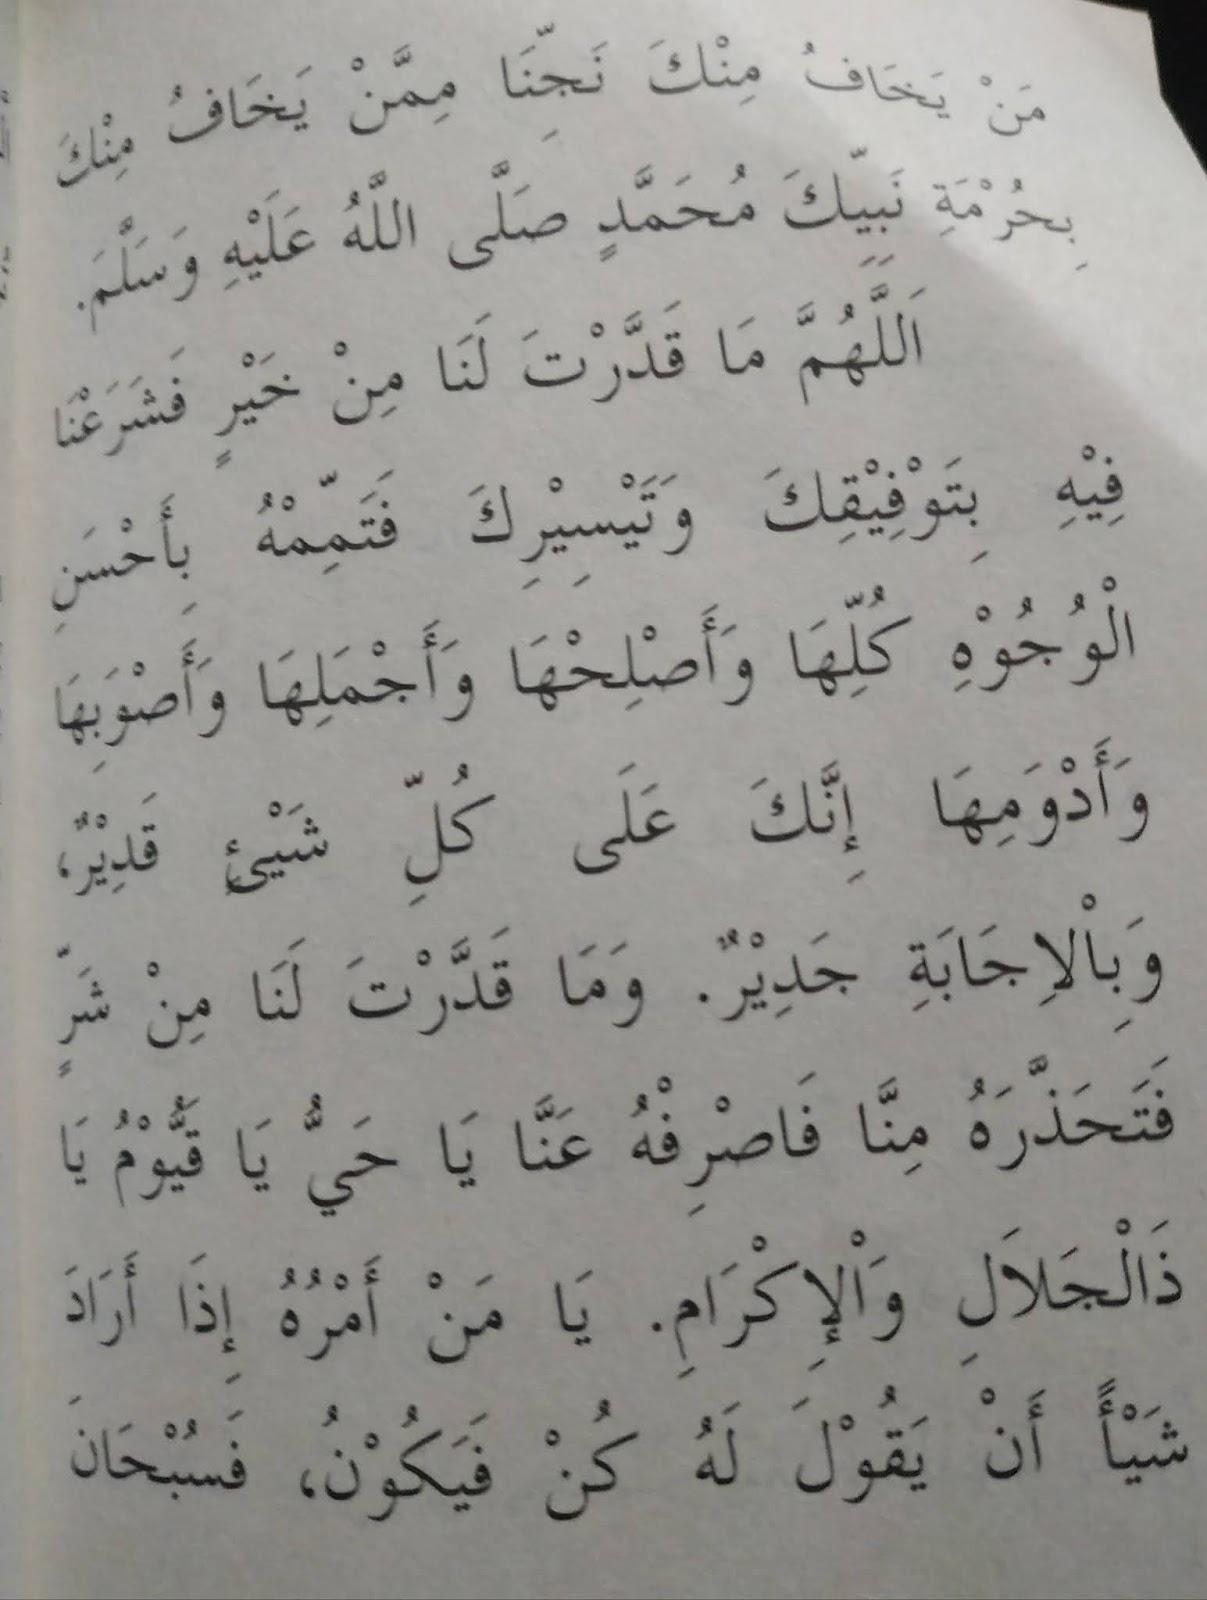 مَنْ يَخَافُ مِنْكَ نَجِّنَا مِمَّنْ يَخَافُ مِنْكَ
بِحُرْمَةِ نَبِيِّكَ مُحَمَّدٍ صَلَّى اللَّهُ عَلَيْهِ وَسَلَّمَ.
اَللَّهُمَّ مَا قَدَّرْتَ لَنَا مِنْ خَيْرٍ فَشَرَعْنَا
فِيْهِ بِتَوْفِيْقِكَ وَتَيْسِيْرِكَ فَتَمِّمْهُ بِأَحْسَنِ
الْوُجُوْهِ كُلِّهَا وَأَصْلِحْهَا وَأَجْمَلِهَا وَأَصْوَبِهَا
وَأَدْوَمِهَا إِنَّكَ عَلَى كُلِّ شَيْئٍ قَدِيْرٌ،
وَبِالْاِجَابَةِ جَدِيْرٌ. وَمَا قَدَّرْتَ لَنَا مِنْ شَرٍّ
فَتَحَذَّرَهُ مِنَّا فَاصْرِفْهُ عَنَّا يَا حَيُّ يَا قَيُّوْمُ يَا
ذَالْجَلَالِ وَالْإِكْرَامِ. يَا مَنْ أَمْرُهُ إِذَا أَرَادَ
شَيْأً أَنْ يَقُوْلَ لَهُ كُنْ فَيَكُوْنُ، فَسُبْحَانَ